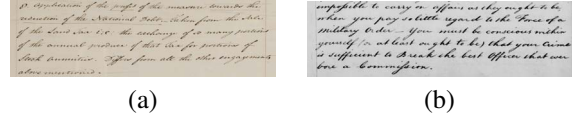 8. Application of the profits of the measure towards the
reduction of the National Debt, taken from the Sale
of the Land Tax &c. the exchange of so many portions
of the annual produce of that tax for portions of
Stock Annuities. Differ from all the other engagements
above mentioned.
(a)
impossible to carry on affairs as they ought to be
when you pay so little regard to the Force of a
Military Order — You must be conscious within
yourself (or at least ought to be) that your Crime
is sufficient to Break the best Officer that ever
bore a Commission.
(b)